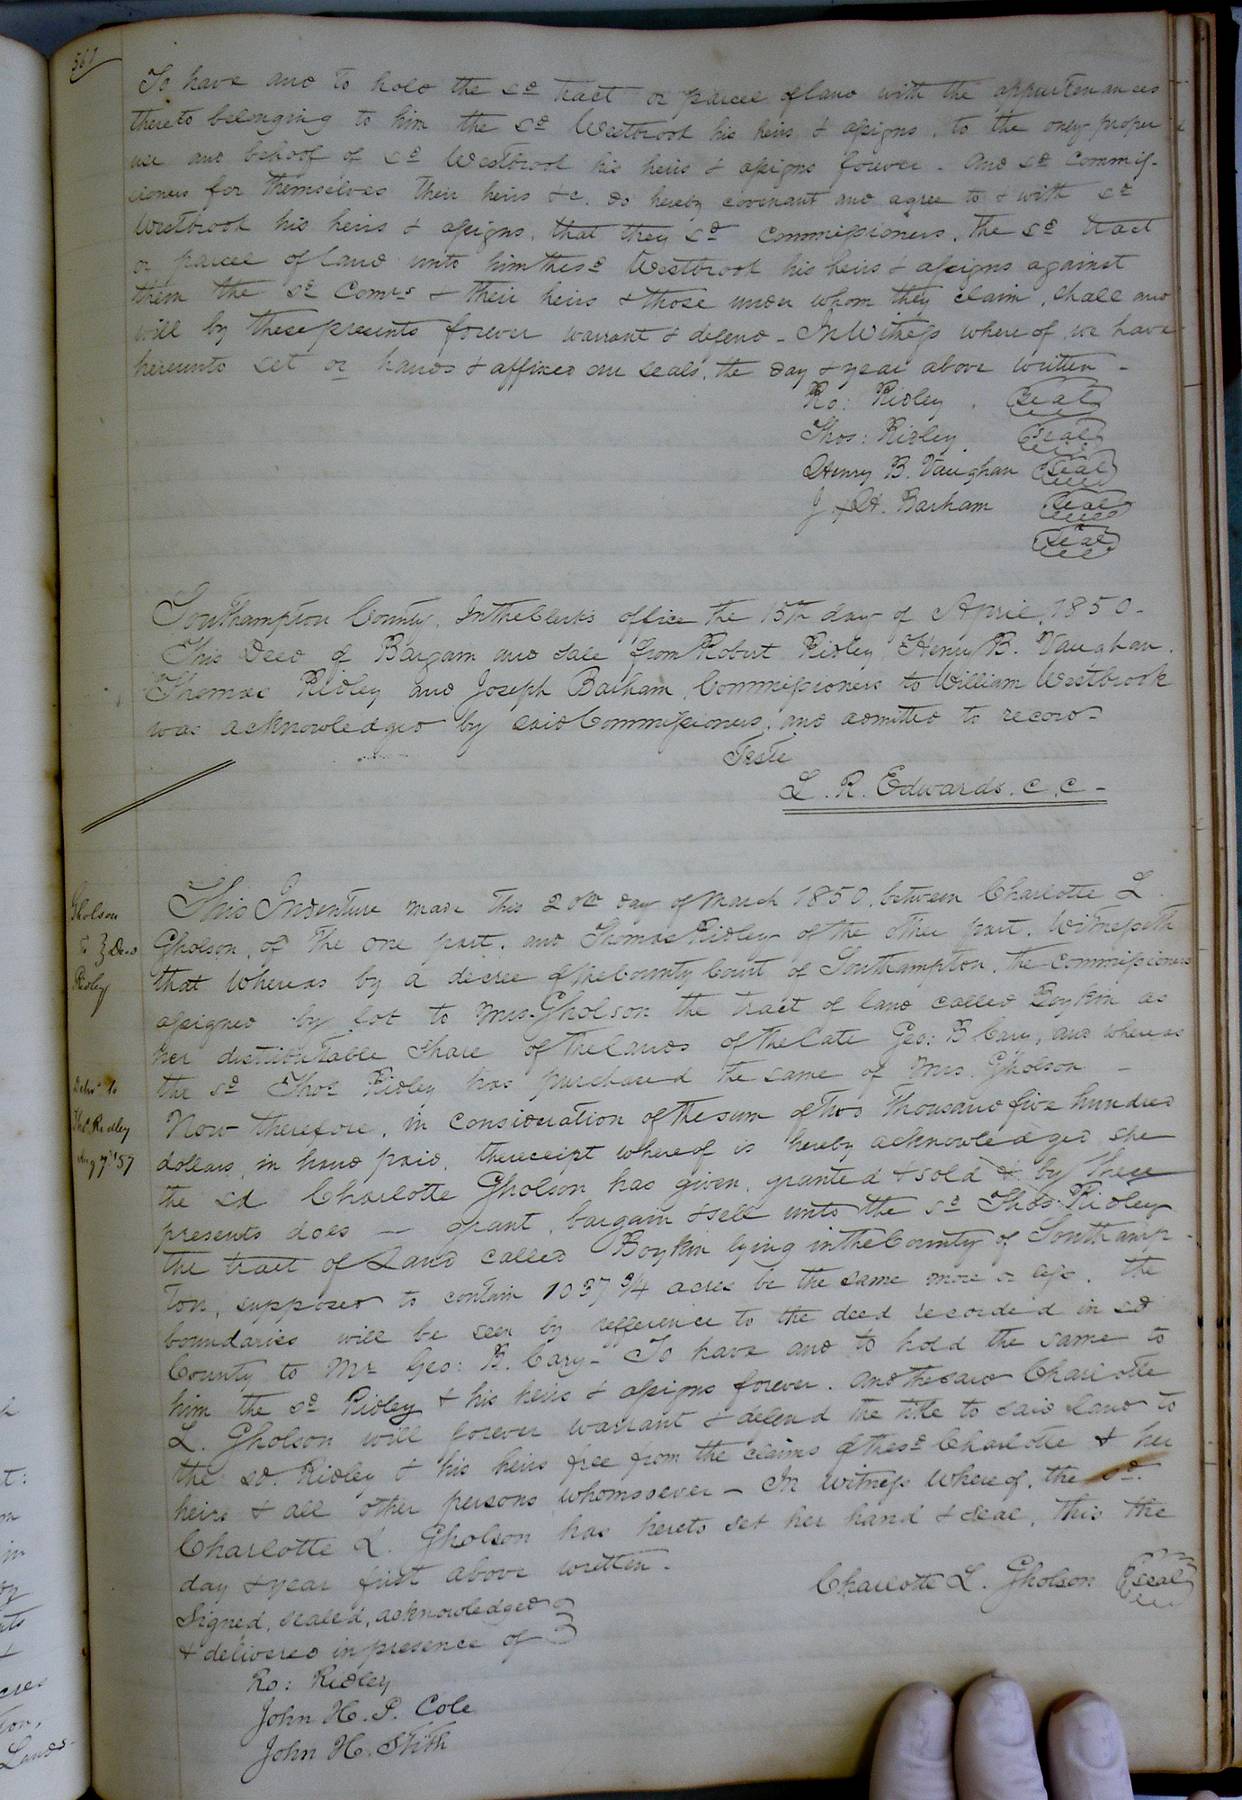 567
To have and to hold the sd tract or parcel of land with the appurtenances
thereto belonging to him the sd Westbrook his heirs & assigns, to the only proper
use and behoof of sd Westbrook his heirs & assigns forever. And sd Commis-
sioners for themselves their heirs &c. do hereby covenant and agree to & with sd
Westbrook his heirs & assigns, that they sd Commissioners, the sd tract
or parcel of land unto him the sd Westbrook his heirs & assigns against
them the sd Comrs & their heirs & those under whom they claim, shall and
will by these presents forever warrant & defend - In Witness whereof we have
hereunto set or hands & affixed our seals, the day & year above written -
Ro: Ridley . Seal
Thos: Ridley Seal
Henry B. Vaughan Seal
J. H. Barham Seal
Seal
Southampton County, In the Clerk's office the 15th day of April, 1850-
This Deed of Bargain and Sale from Robert Ridley, Henry B. Vaughan,
Thomas Ridley and Joseph Barham, Commissioners to William Westbrook
was acknowledged by said Commissioners, and admitted to record-
Teste
L. R. Edwards. C. C -
Gholson
To } Deed
Ridley
This Indenture made this 20th day of March 1850, between Charlotte L.
Gholson, of the one part, and Thomas Ridley of the other part, Witnesseth
that whereas by a decree of the County Court of Southampton, the commissioners
assigned by lot to Mrs. Gholson the tract of land called Boykin as
her distributable share of the lands of the late Geo: B Cary, and whereas
the sd Thos Ridley has purchased the same of Mrs. Gholson -
Deld to
Thos Ridley
Aug 7th '57
Now therefore, in consideration of the sum of two thousand five hundred
dollars, in hand paid, the receipt whereof is hereby acknowledged she
the sd Charlotte Gholson has given, granted & sold & by these
presents does — grant, bargain & sell unto the sd Thos: Ridley
the tract of Land called Boykin lying in the County of Southamp-
ton, supposed to contain 1037 3/4 acres be the same more or less, the
boundaries will be seen by refference to the deed recorded in sd
County to Mr Geo: B. Cary- To have and to hold the same to
him the sd Ridley & his heirs & assigns forever. And the said Charlotte
L. Gholson will forever warrant & defend the title to said Land to
the sd. Ridley & his heirs free from the claims of the sd Charlotte & her
heirs & all other persons whomsoever - In witness whereof, the sd.
Charlotte L. Gholson has hereto set her hand & seal, this the
day & year first above written.
Charlotte L. Gholson Seal
Signed, sealed, acknowledged }
& delivered in presence of }
Ro: Ridley
John H. P. Cole
John H. Stith